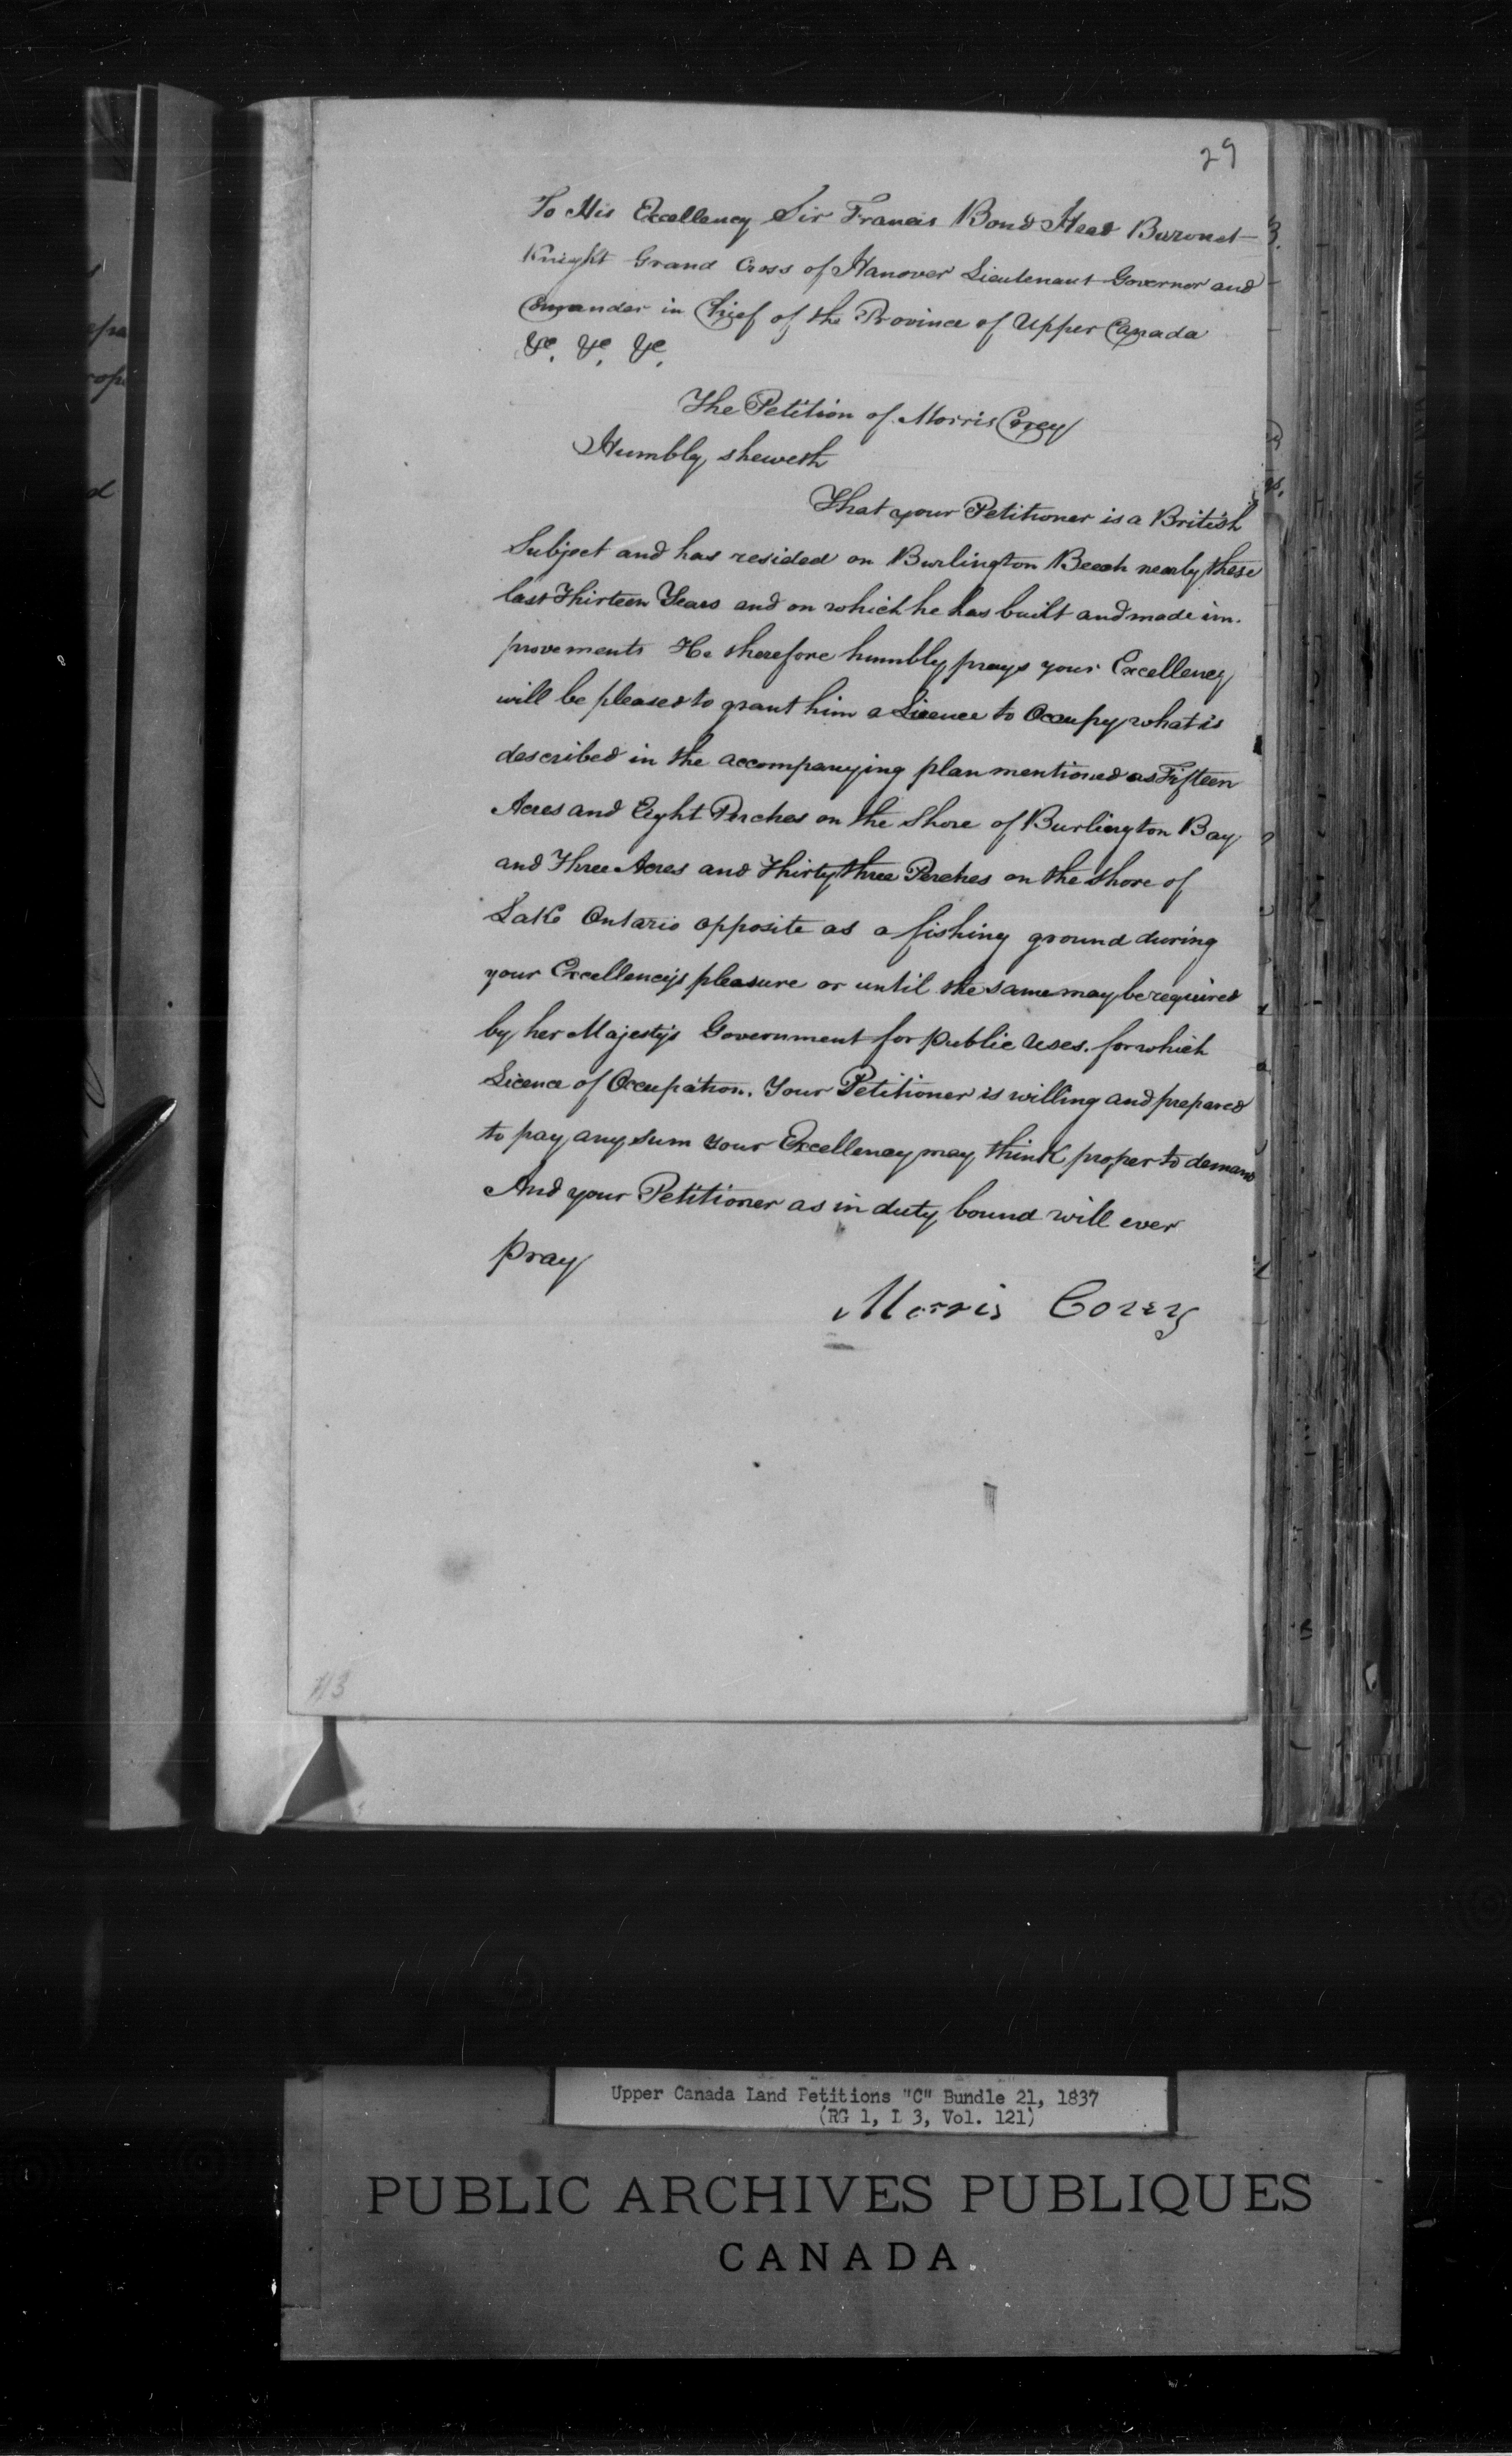 29
To His Excellency Sir Francis Bond Head Baronet
Knight Grand Cross of Hanover Lieutenant Governor and
Comander in Chief of the Province of Upper Canada
&c. &c. &c.
The Petition of Morris Corey
Humbly sheweth
That your Petitioner is a British
Subject and has resided on Burlington Beech nearly these
last Thirteen Years and on which he has built and made im-
provements He therefore humbly prays your Excellency
will be pleased to grant him a Licence to Occupy what is
described in the accompanying plan mentioned as Fifteen
Acres and Eight Perches on the Shore of Burlington Bay
and Three Acres and Thirty three Perches on the shore of
Lake Ontario opposite as a fishing ground during
your Excellency's pleasure or until the same may be required
by her Majesty's Government for public Uses. for which
Licence of Occupation. Your Petitioner is willing and prepared
to pay any sum your Excellency may think proper to demand
And your Petitioner as in duty bound will ever
pray
Morris Corey
Upper Canada Land Petitions "C" Bundle 21, 1837
(RG 1, L 3, Vol. 121)
PUBLIC ARCHIVES PUBLIQUES
CANADA